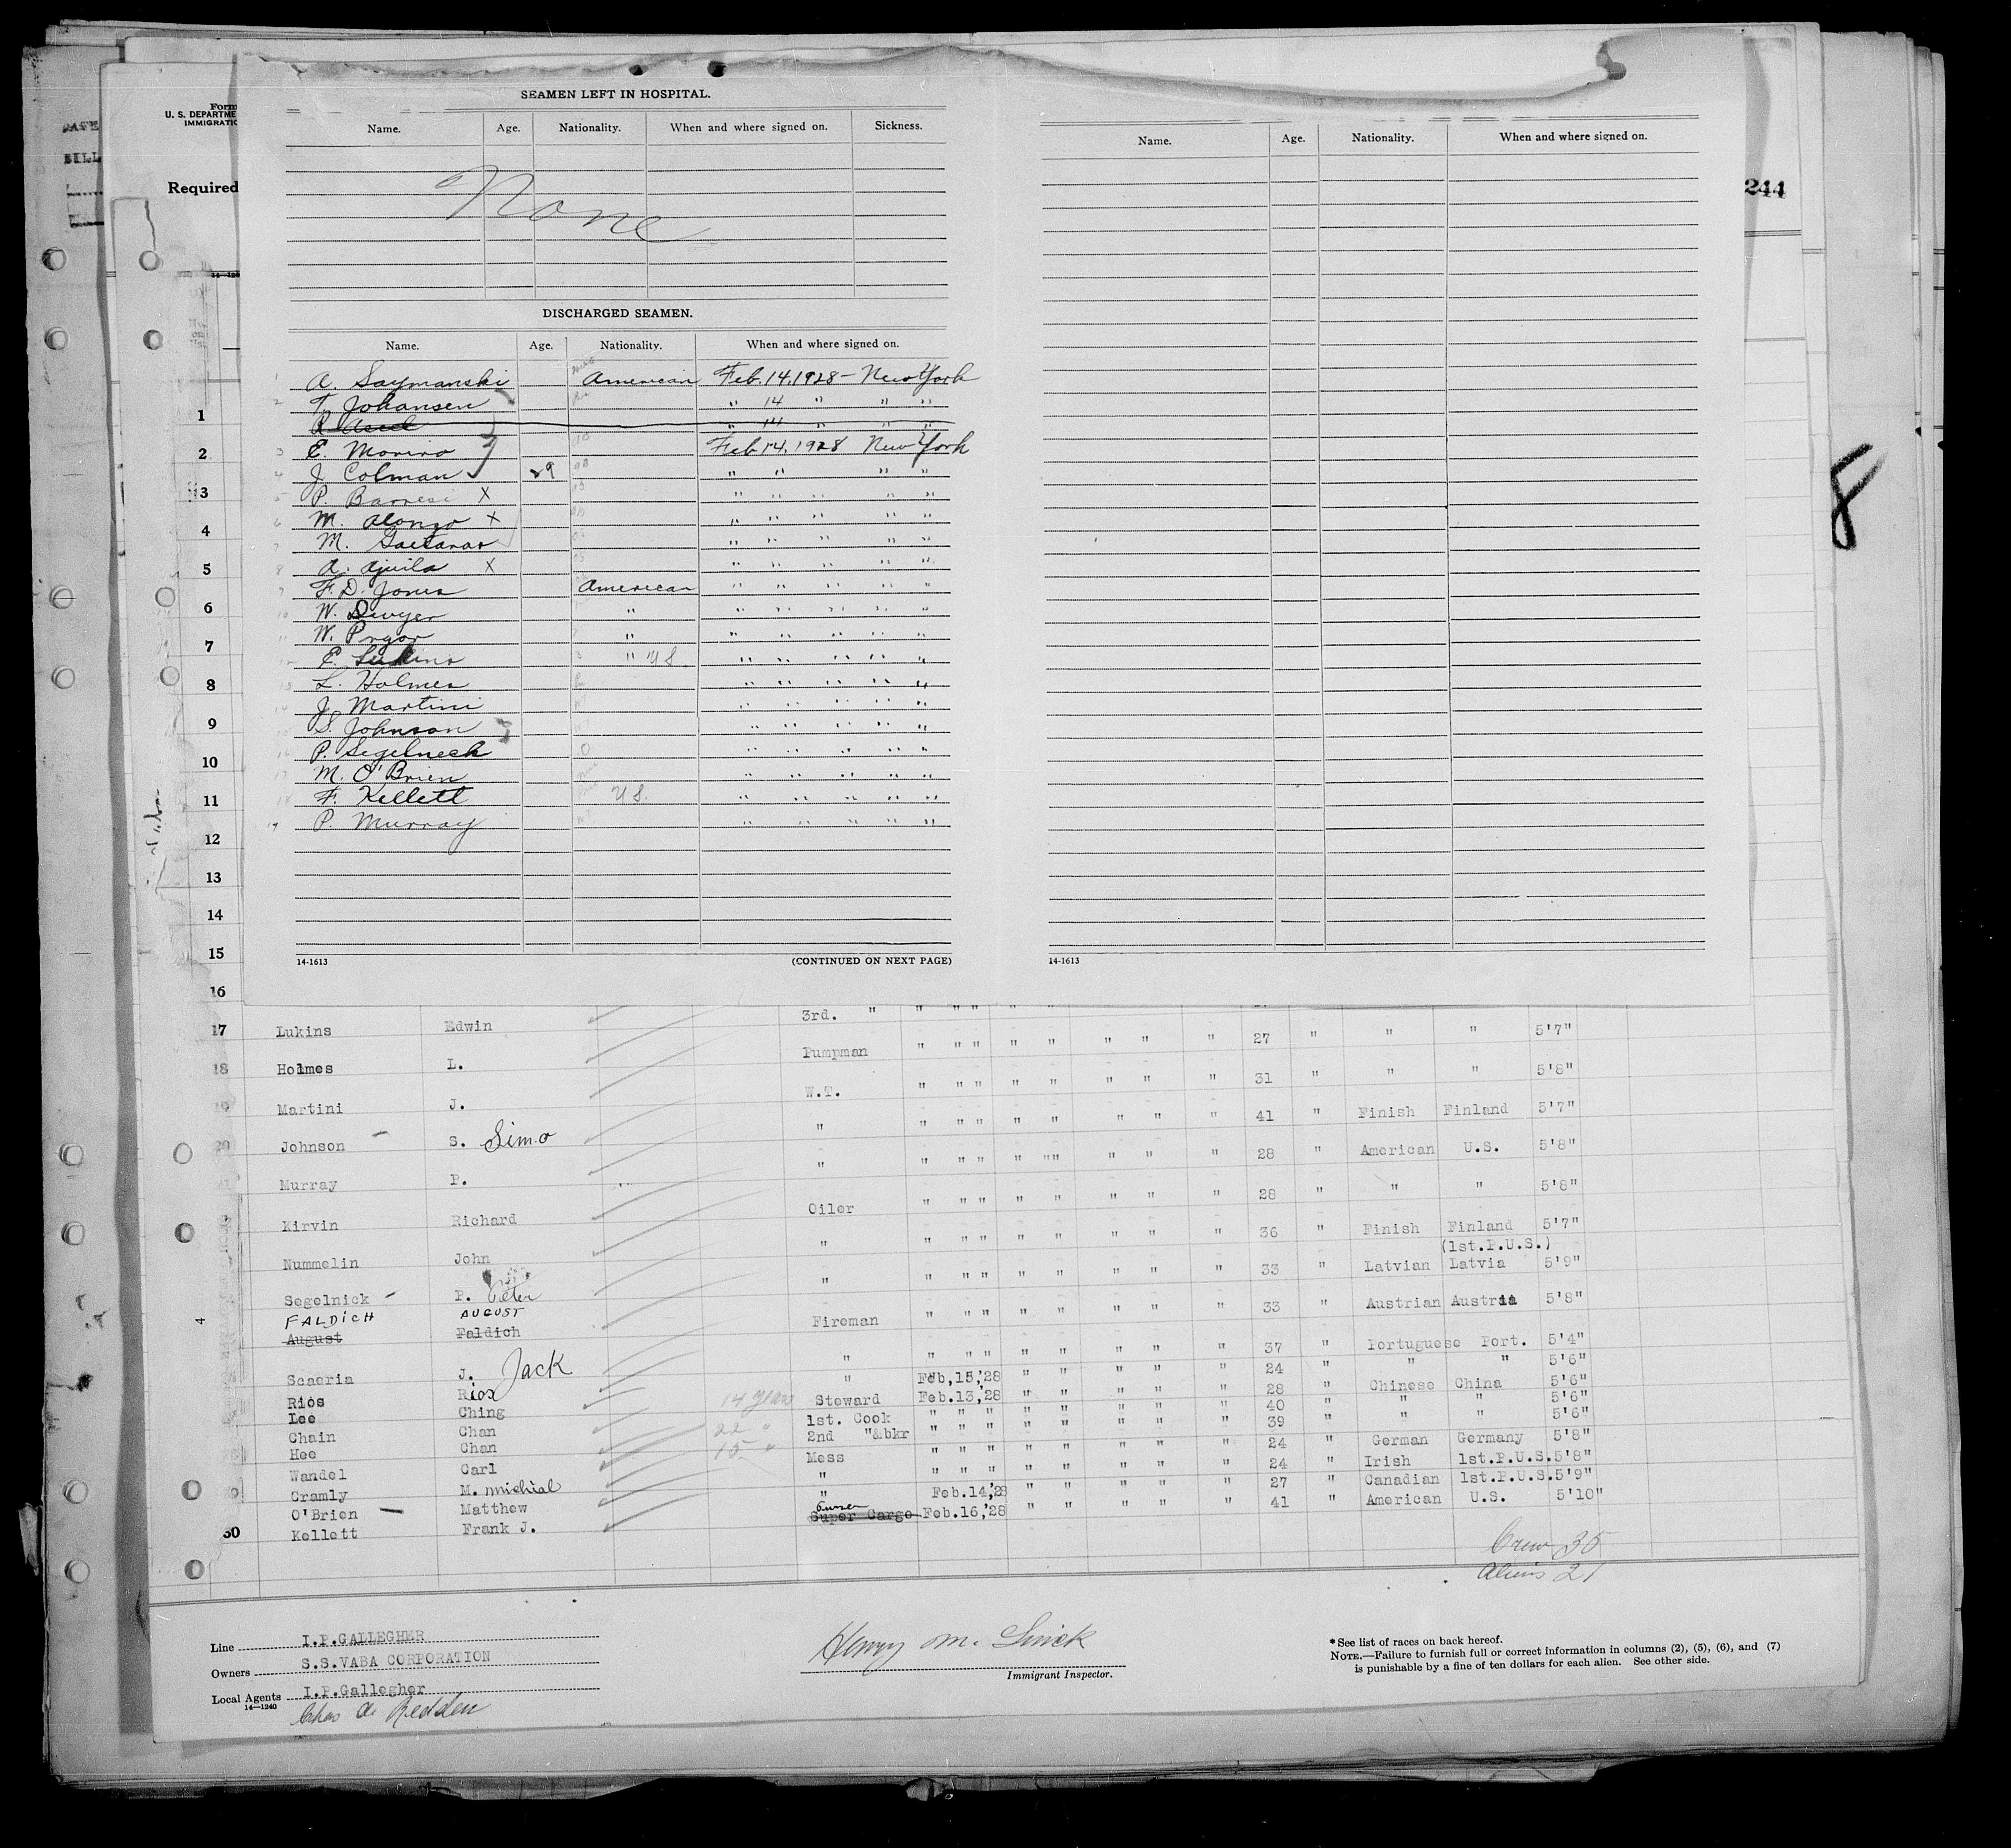 Form
U. S. DEPARTME
IMMIGRATIO
DATE
BILL
Required
244
8
SEAMEN LEFT IN HOSPITAL.
Name. Age. Nationality. When and where signed on. Sickness.
None
DISCHARGED SEAMEN.
Name. Age. Nationality. When and where signed on.
1 A. Saymanski American Feb. 14, 1928 - New York
2 T. Johansen " 14 " " "
R. " 14 " " "
3 E. Morino Feb 14, 1928 New York
4 J. Colman 29 " " " "
5 P. Barresi X " " " " "
6 M. Alonzo X " " " " "
7 M. Gaetanos " " " " "
8 A. Aguila X " " " " "
9 F. D. Jones American " " " " "
10 W. Dwyer " " " " " "
11 W. Prgor " " " " " "
12 E. Lukins " U S " " " " "
13 L. Holmes " " " " "
14 J. Martini " " " " "
15 S. Johnson " " " " "
16 P. Segelneck " " " " "
17 M. O'Brien " " " " "
18 F. Kellett U S. " " " " "
19 P. Murray " " " " "
14-1613 (CONTINUED ON NEXT PAGE)
Name. Age. Nationality. When and where signed on.
14-1613
1
2
3
4
5
6
7
8
9
10
11
12
13
14
15
16
3rd. " " " "
17 Lukins Edwin " " " " " " " " 27 " " " 5'7"
Pumpman
18 Holmes L. " " " " " " " " 31 " " " 5'8"
W.T.
19 Martini J. " " " " " " " " 41 " Finish Finland 5'7"
"
20 Johnson - S. Simo " " " " " " " " 28 " American U.S. 5'8"
"
21 Murray P. " " " " " " " " 28 " " " 5'8"
Oiler
Kirvin Richard " " " " " " " " 36 " Finish Finland 5'7"
" (1st.P.U.S.)
Nummelin John " " " " " " " " 33 " Latvian Latvia 5'9"
"
Segelnick - P. Peter " " " " " " " " 33 " Austrian Austria 5'8"
FALDICH AUGUST
August Faldich Fireman " " " " " " " " 37 " Portuguese Port. 5'4"
Scaeria J. Jack " " " " " " 24 " " " 5'6"
Rios Rios " Feb,15,'28 " " " " " 28 " Chinese China 5'6"
Lee Ching 14 years Steward Feb.13,'28 " " " " " 40 " " " 5'6"
Chain Chan 22 " 1st. Cook " " " " " " " " 39 " " " 5'6"
Hee Chan 15 " 2nd "&bkr " " " " " " " " 24 " German Germany 5'8"
Wandel Carl Mess " " " " " " " " 24 " Irish 1st.P.U.S. 5'8"
Cramly M. Michial " " " " " " " " " 27 " Canadian 1st.P.U.S. 5'9"
O'Brien - Matthew " Feb.14,'28 " " " " " 41 " American U.S. 5'10"
30 Kellett Frank J. Purser Super Cargo Feb.16,'28
4
Crew 35
Aliens 21
Line I.P.GALLEGHER
Owners S.S.VABA CORPORATION
Local Agents I.P.Gallegher
14-1240
Chas A. Redden
Henry M. Smick
Immigrant Inspector.
* See list of races on back hereof.
NOTE.—Failure to furnish full or correct information in columns (2), (5), (6), and (7)
is punishable by a fine of ten dollars for each alien. See other side.